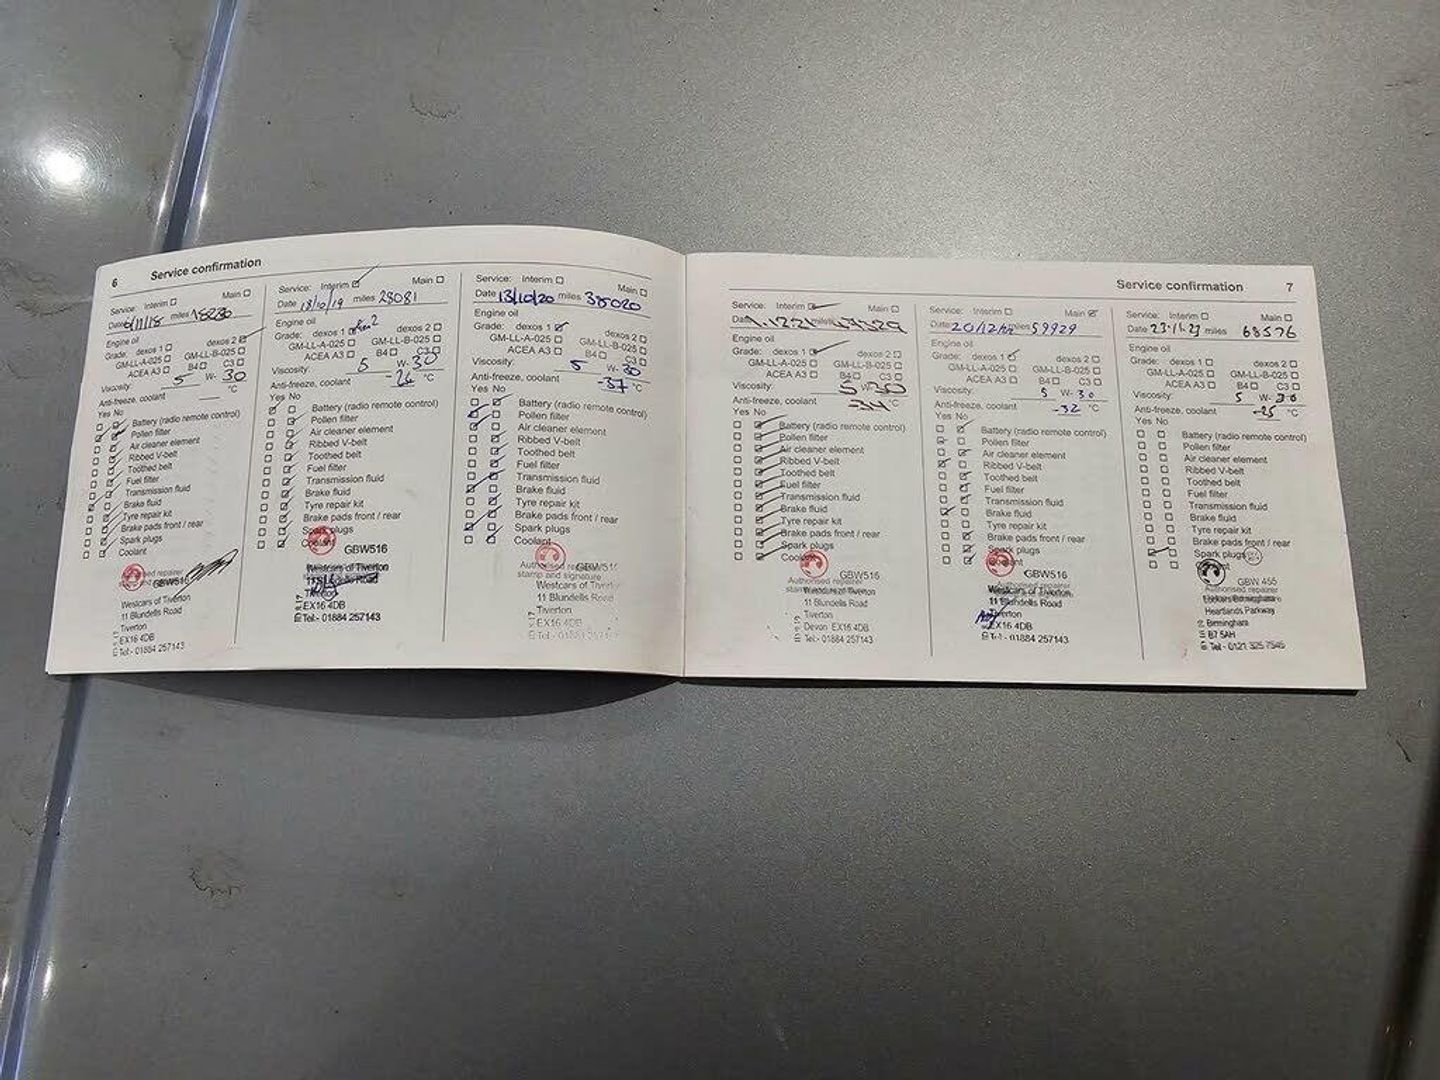 6 Service confirmation
Service: Interim Main
Date 6/11/18 miles 18230
Engine oil
Grade: dexos 1 dexos 2
GM-LL-A-025 GM-LL-B-025
ACEA A3 B4 C3
Viscosity: 5 W- 30
Anti-freeze, coolant °C
Yes No
Battery (radio remote control)
Pollen filter
Air cleaner element
Ribbed V-belt
Toothed belt
Fuel filter
Transmission fluid
Brake fluid
Tyre repair kit
Brake pads front / rear
Spark plugs
Coolant
GBW516
Westcars of Tiverton
11 Blundells Road
Tiverton
EX16 4DB
Tel:- 01884 257143
Service: Interim Main
Date 18/10/19 miles 28081
Engine oil
Grade: dexos 1 dexos 2
GM-LL-A-025 GM-LL-B-025
ACEA A3 B4 C3
Viscosity: 5 W- 30
Anti-freeze, coolant °C
Yes No
Battery (radio remote control)
Pollen filter
Air cleaner element
Ribbed V-belt
Toothed belt
Fuel filter
Transmission fluid
Brake fluid
Tyre repair kit
Brake pads front / rear
Spark plugs
Coolant
GBW516
Westcars of Tiverton
11 Blundells Road
Tiverton
EX16 4DB
Tel:- 01884 257143
Service: Interim Main
Date 13/10/20 miles 38020
Engine oil
Grade: dexos 1 dexos 2
GM-LL-A-025 GM-LL-B-025
ACEA A3 B4 C3
Viscosity: 5 W- 30
Anti-freeze, coolant -37 °C
Yes No
Battery (radio remote control)
Pollen filter
Air cleaner element
Ribbed V-belt
Toothed belt
Fuel filter
Transmission fluid
Brake fluid
Tyre repair kit
Brake pads front / rear
Spark plugs
Coolant
Authorised repairer
stamp and signature
Westcars of Tiverton
11 Blundells Road
Tiverton
EX16 4DB
Tel:- 01884 257143
Service confirmation 7
Service: Interim Main
Date miles
Engine oil
Grade: dexos 1 dexos 2
GM-LL-A-025 GM-LL-B-025
ACEA A3 B4 C3
Viscosity: 5 W- 30
Anti-freeze, coolant -34 °C
Yes No
Battery (radio remote control)
Pollen filter
Air cleaner element
Ribbed V-belt
Toothed belt
Fuel filter
Transmission fluid
Brake fluid
Tyre repair kit
Brake pads front / rear
Spark plugs
Coolant
GBW516
Authorised repairer
Westcars of Tiverton
11 Blundells Road
Tiverton
Devon EX16 4DB
Tel:- 01884 257143
Service: Interim Main
Date 20/12/22 miles 59929
Engine oil
Grade: dexos 1 dexos 2
GM-LL-A-025 GM-LL-B-025
ACEA A3 B4 C3
Viscosity: 5 W- 30
Anti-freeze, coolant -32 °C
Yes No
Battery (radio remote control)
Pollen filter
Air cleaner element
Ribbed V-belt
Toothed belt
Fuel filter
Transmission fluid
Brake fluid
Tyre repair kit
Brake pads front / rear
Spark plugs
Coolant
GBW516
Authorised repairer
Westcars of Tiverton
11 Blundells Road
Tiverton
EX16 4DB
Tel:- 01884 257143
Service: Interim Main
Date 23.11.23 miles 68576
Engine oil
Grade: dexos 1 dexos 2
GM-LL-A-025 GM-LL-B-025
ACEA A3 B4 C3
Viscosity: 5 W- 30
Anti-freeze, coolant -25 °C
Yes No
Battery (radio remote control)
Pollen filter
Air cleaner element
Ribbed V-belt
Toothed belt
Fuel filter
Transmission fluid
Brake fluid
Tyre repair kit
Brake pads front / rear
Spark plugs
GBW 455
Authorised repairer
Heartlands Parkway
Birmingham
B7 5AH
Tel - 0121 325 7545